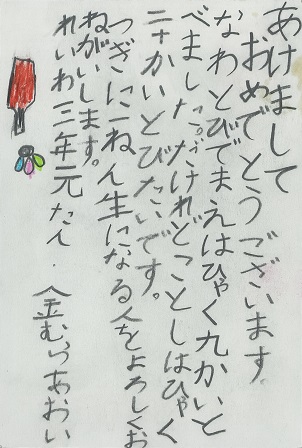 あけまして
おめでとうございます。
なわとびでまえはひゃく九かいと
べました。だけれどことしはひゃく
二十かいとびたいです。
つぎに一ねん生になる人をよろしくお
ねがいします。
れいわ三年元たん 金むらあおい